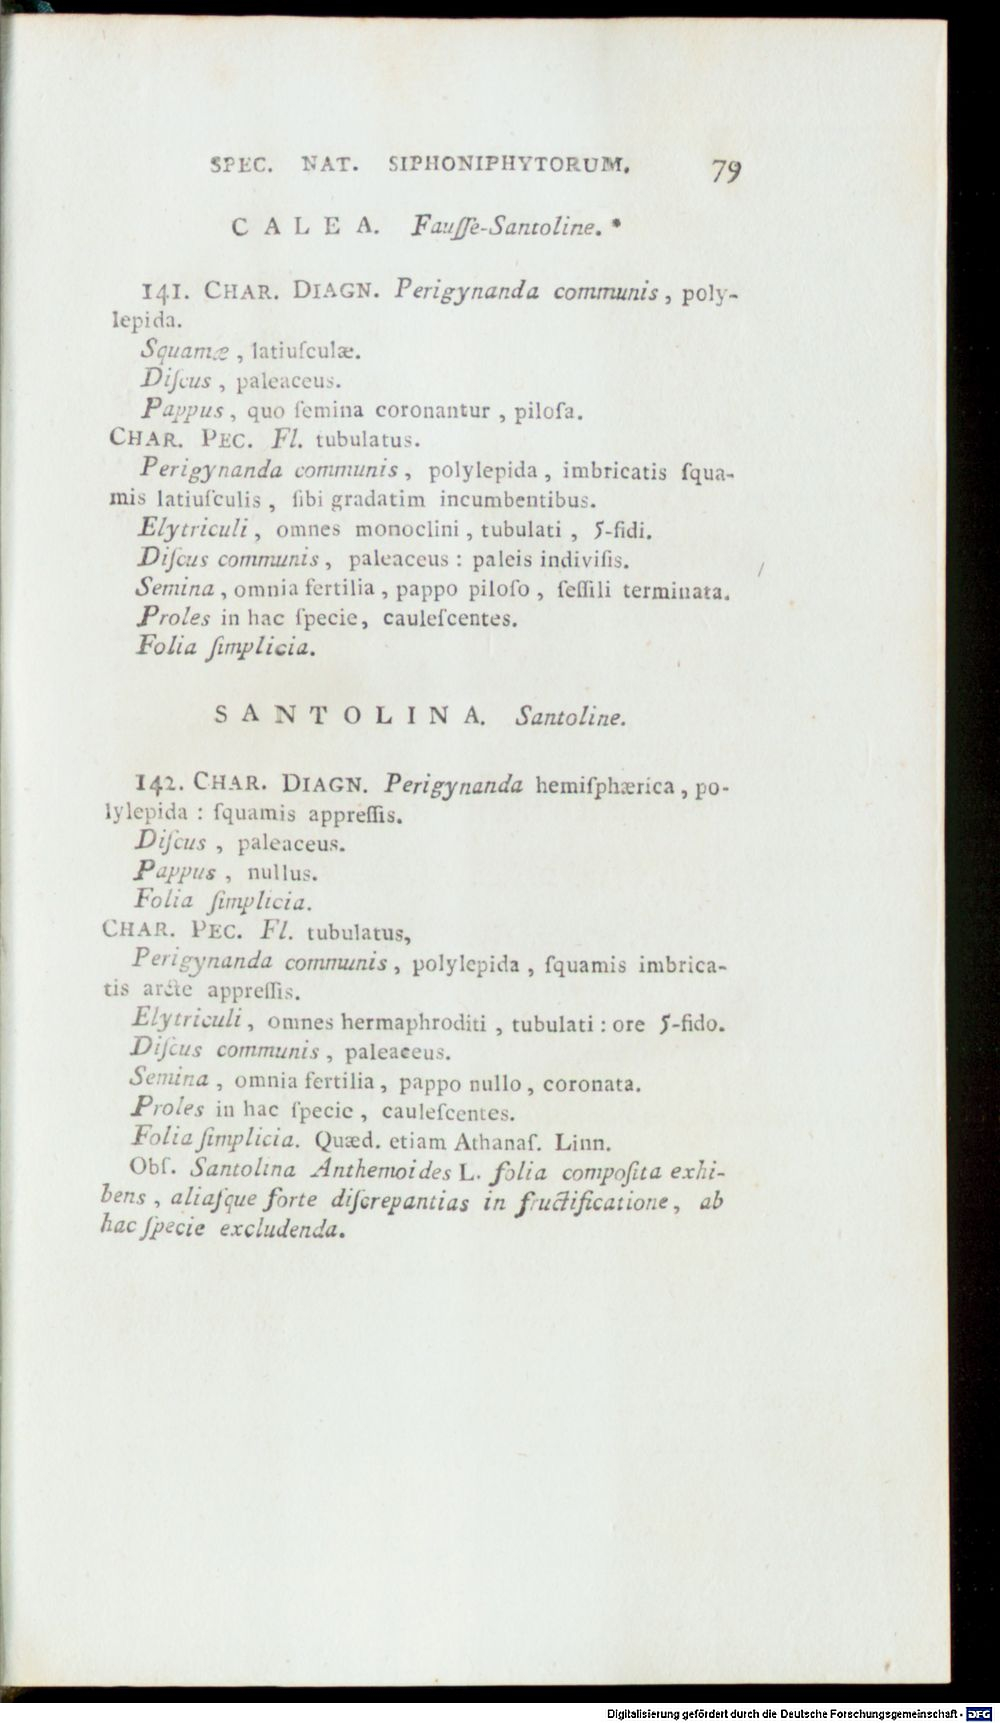 SPEC. NAT. SIPHONIPHYTORUM. 79
CALEA. Fauſſe-Santoline. *
141. CHAR. DIAGN. Perigynanda communis, poly-
lepida.
Squamæ, latiuſculæ.
Diſcus, paleaceus.
Pappus, quo ſemina coronantur, piloſa.
CHAR. PEC. Fl. tubulatus.
Perigynanda communis, polylepida, imbricatis ſqua-
mis latiuſculis, ſibi gradatim incumbentibus.
Elytriculi, omnes monoclini, tubulati, 5-fidi.
Diſcus communis, paleaceus: paleis indiviſis.
Semina, omnia fertilia, pappo piloſo, ſeſſili terminata.
Proles in hac ſpecie, cauleſcentes.
Folia ſimplicia.
SANTOLINA. Santoline.
142. CHAR. DIAGN. Perigynanda hemiſphærica, po-
lylepida: ſquamis appreſſis.
Diſcus, paleaceus.
Pappus, nullus.
Folia ſimplicia.
CHAR. PEC. Fl. tubulatus,
Perigynanda communis, polylepida, ſquamis imbrica-
tis arcte appreſſis.
Elytriculi, omnes hermaphroditi, tubulati: ore 5-fido.
Diſcus communis, paleaceus.
Semina, omnia fertilia, pappo nullo, coronata.
Proles in hac ſpecie, cauleſcentes.
Folia ſimplicia. Quæd. etiam Athanaſ. Linn.
Obſ. Santolina Anthemoides L. folia compoſita exhi-
bens, aliaſque forte diſcrepantias in fructificatione, ab
hac ſpecie excludenda.
Digitalisierung gefördert durch die Deutsche Forschungsgemeinschaft - DFG